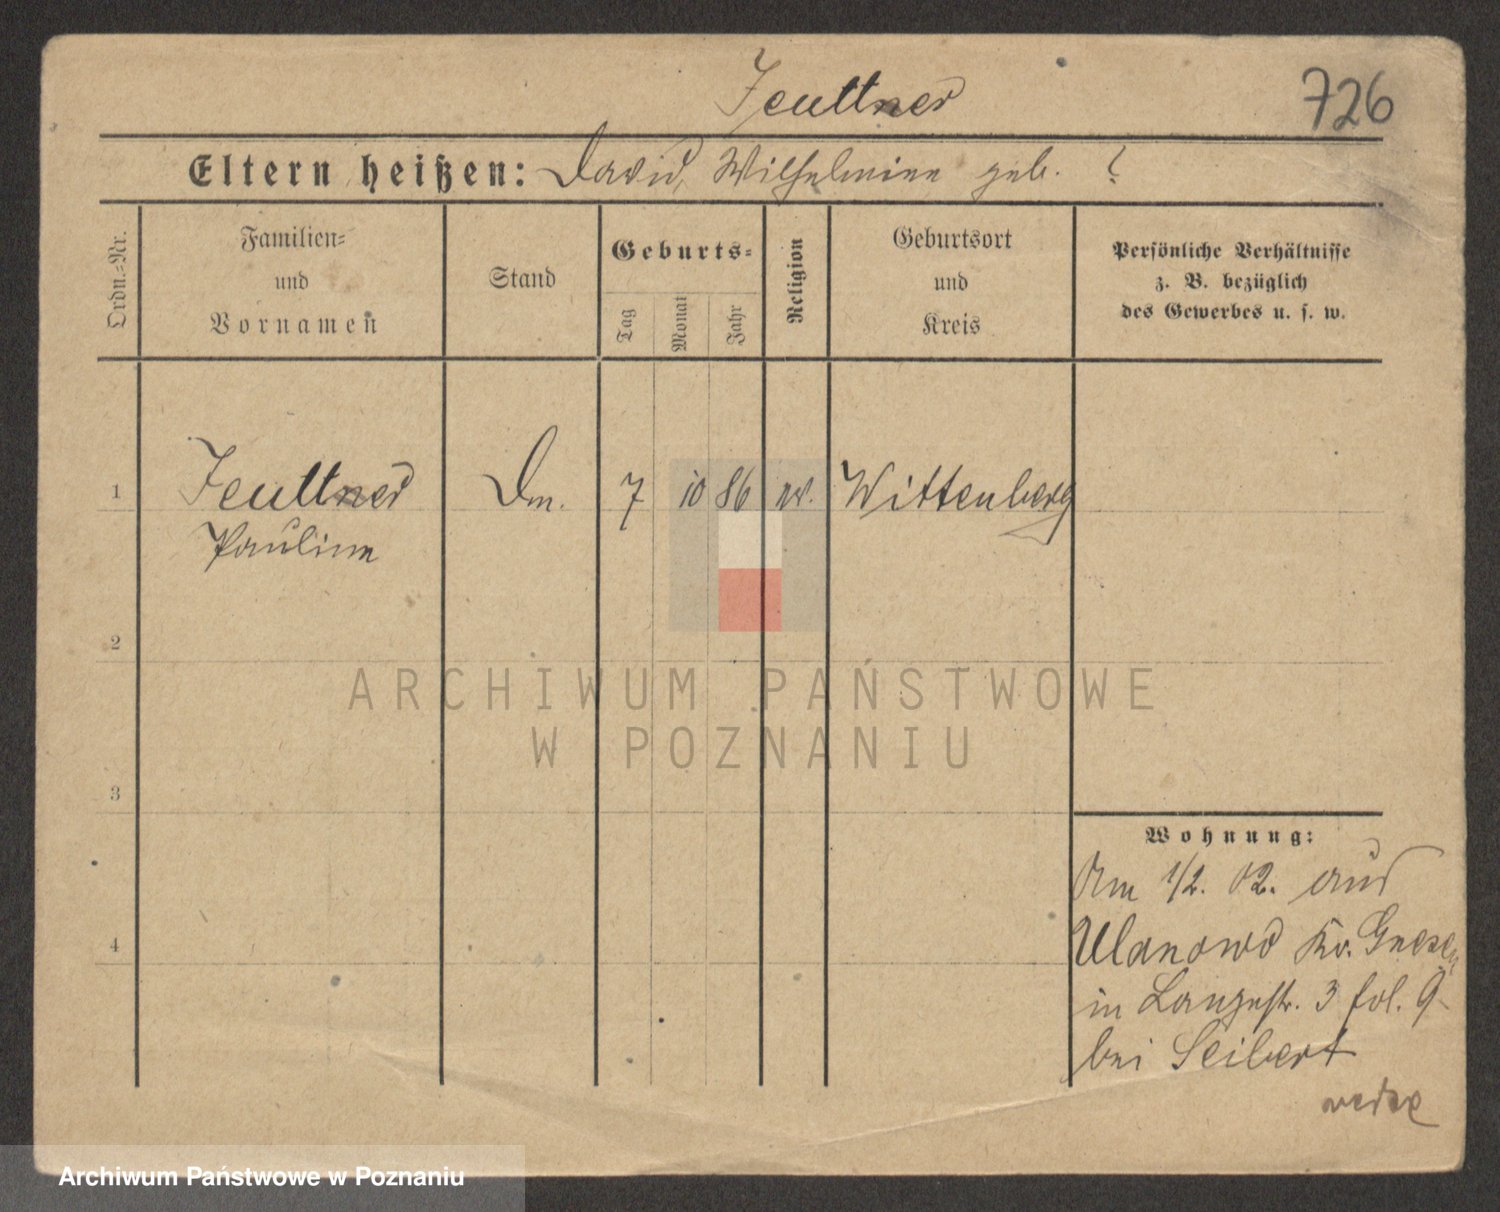 Jeuttner
726
Eltern heißen: David, Wilhelmine geb. ?
Ordn.=Nr.
Familien=
und
Vornamen
Stand
Geburts=
Tag
Monat
Jahr
Religion
Geburtsort
und
Kreis
Persönliche Verhältnisse
z. B. bezüglich
des Gewerbes u. s. w.
1 Jeuttner Dm. 7 10 86 ev. Wittenberg
Pauline
2
3
4
Wohnung:
Am 1/2. 02. aus
Ulanowo Kr. Gnesen
in Langestr. 3 fol. 9
bei Seibert
ARCHIWUM PAŃSTWOWE
W POZNANIU
Archiwum Państwowe w Poznaniu